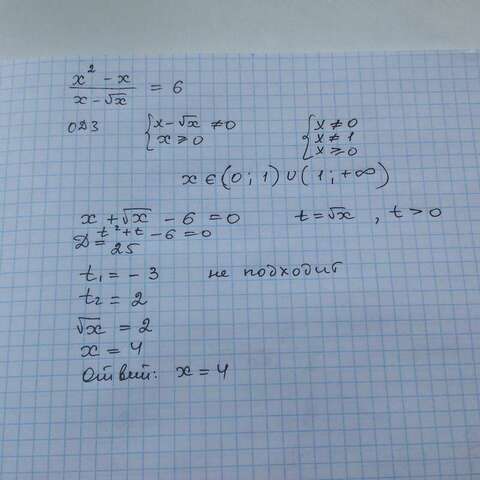 x² - x / x - √x = 6
ОДЗ { x - √x ≠ 0 { x ≠ 0
x ≥ 0 x ≠ 1
x ≥ 0
x ∈ (0; 1) ∪ (1; +∞)
x + √x - 6 = 0 t = √x , t > 0
t² + t - 6 = 0
D = 25
t₁ = - 3 не подходит
t₂ = 2
√x = 2
x = 4
Ответ: x = 4